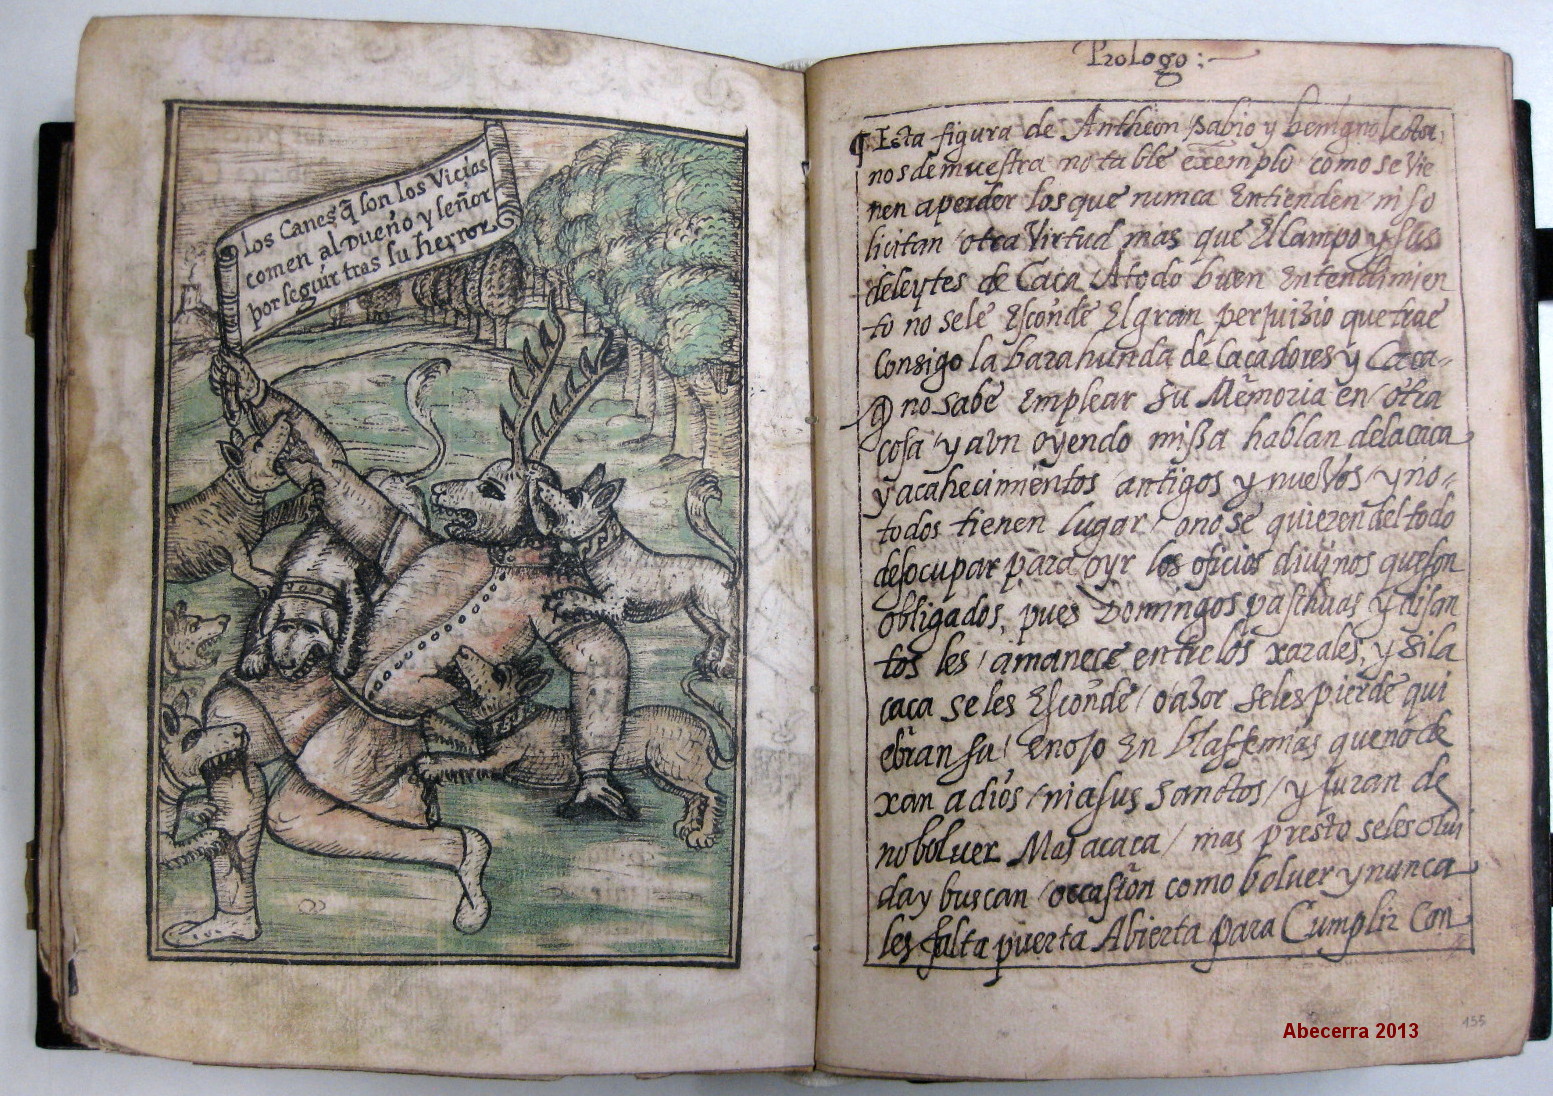 los Canes q̃ son los Vicios
comen al Dueño y señor
por seguir tras su herror
Prologo:
¶ Esta figura de Antheon sabio y benigno lector
nos demuestra notable exemplo como se vie
nen aperder los que nunca Entienden ni so
licitan otra Virtud mas que El campo y sus
deleytes de Caca A todo buen Entendimien
to no sele Esconde El gran perjuizio que trae
Consigo la barahunda de Cacadores y Caca-
q̃ no sabe Emplear su Memoria en otra
cosa / y aun oyendo missa hablan dela caca
y acahecimientos antigos y nuevos / y no-
todos tienen lugar / o no se quieren del todo
desocupar para oyr los oficios divinos que son
obligados, pues Domingos paschuas y disan
tos les / amanece entre los xarales, y si la
caca se les Esconde / o azor seles pierde qui
ebran su / enojo En blassemias que no de
xan a dios / ni a sus Sanctos / y juran de
no boluer Mas a caca / mas presto seles olui
da y buscan / occasion como boluer y nunca
les falta puerta Abierta para Cumplir Con
Abecerra 2013
155